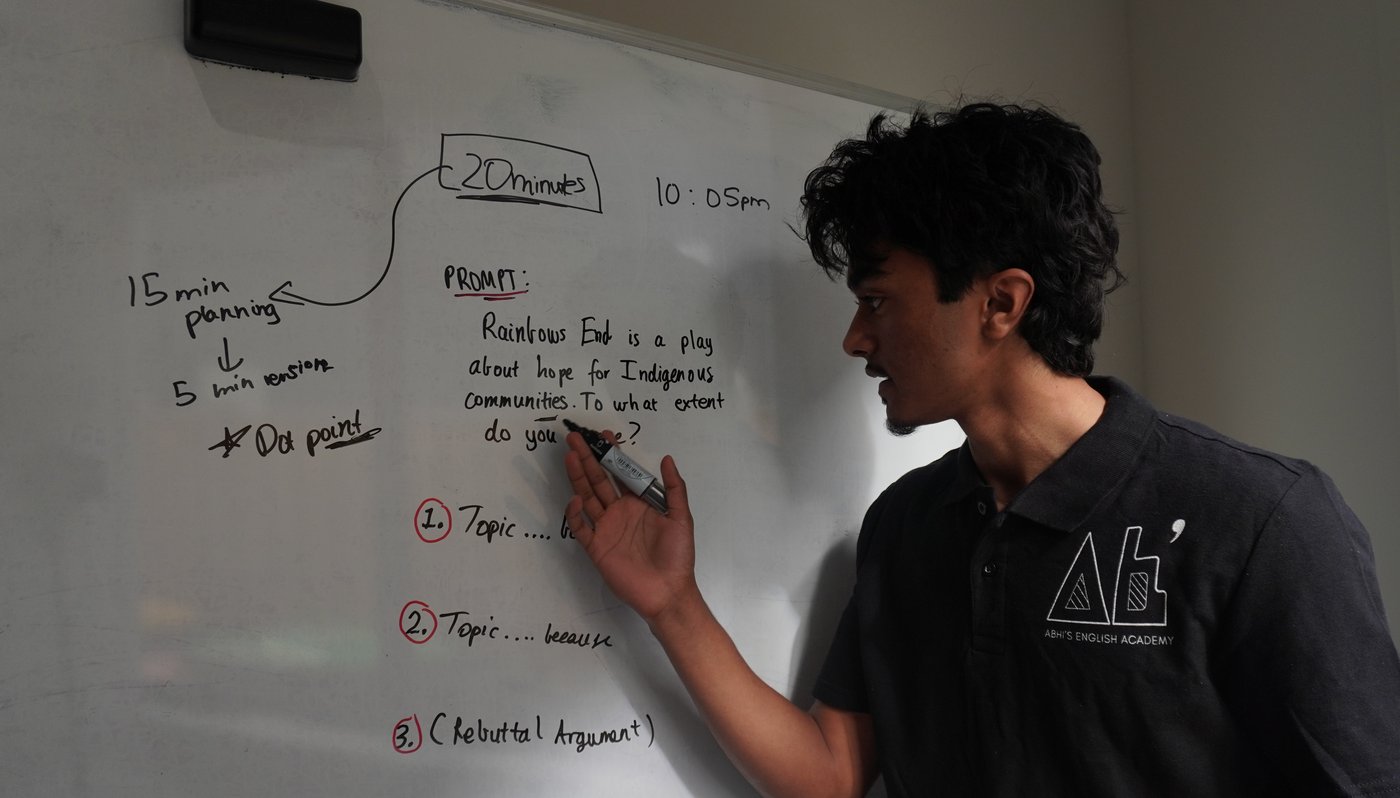 20minutes
10:05pm
15 min
planning
5 min
Dot point
PROMPT:
Rainbows End is a play
about hope for Indigenous
communities. To what extent
do you e?
1. Topic ....
2. Topic .... because
3. (Rebuttal Argument)
Ah'
ABHI'S ENGLISH ACADEMY